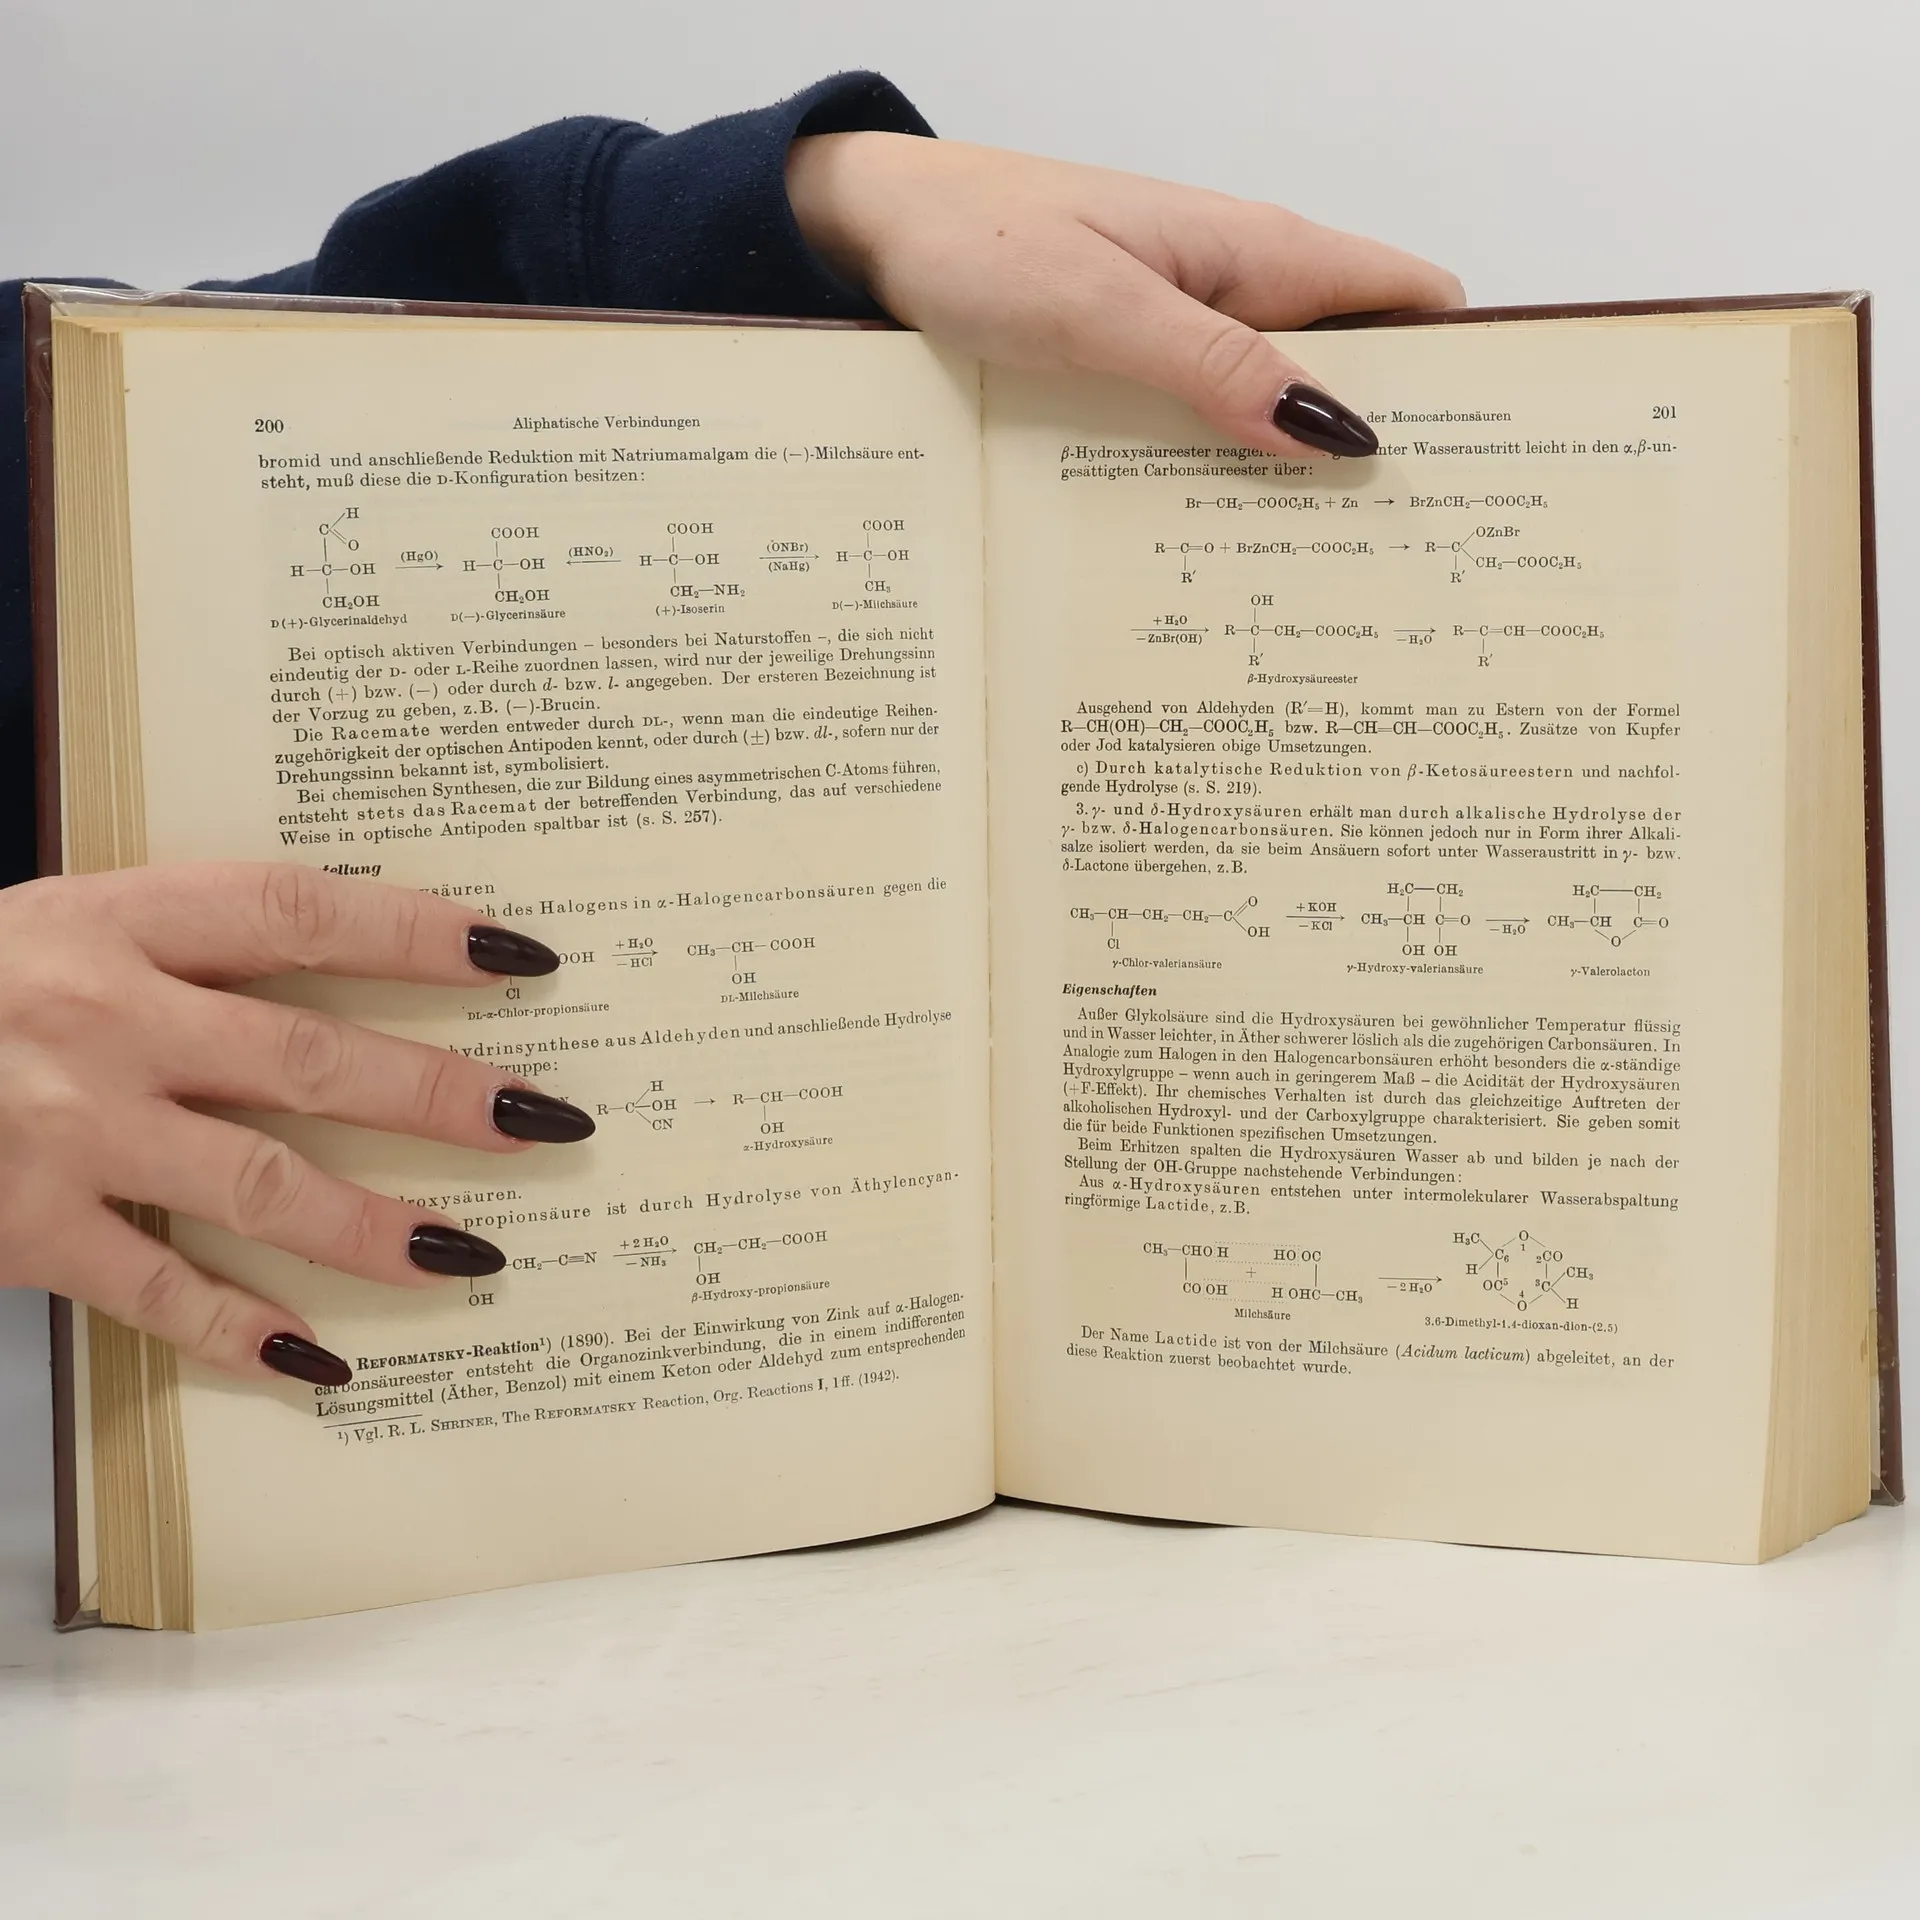 200 Aliphatische Verbindungen
bromid und anschließende Reduktion mit Natriumamalgam die (—)-Milchsäure ent-
steht, muß diese die D-Konfiguration besitzen:
H
C
O
COOH COOH COOH
H—C—OH (HgO) H—C—OH (HNO₂) H—C—OH (ONBr) (NaHg) H—C—OH
CH₂OH CH₂OH CH₂—NH₂ CH₃
D(+)-Glycerinaldehyd D(—)-Glycerinsäure (+)-Isoserin D(—)-Milchsäure
Bei optisch aktiven Verbindungen – besonders bei Naturstoffen –, die sich nicht
eindeutig der D- oder L-Reihe zuordnen lassen, wird nur der jeweilige Drehungssinn
durch (+) bzw. (—) oder durch d- bzw. l- angegeben. Der ersteren Bezeichnung ist
der Vorzug zu geben, z.B. (—)-Brucin.
Die Racemate werden entweder durch DL-, wenn man die eindeutige Reihen-
zugehörigkeit der optischen Antipoden kennt, oder durch (±) bzw. dl-, sofern nur der
Drehungssinn bekannt ist, symbolisiert.
Bei chemischen Synthesen, die zur Bildung eines asymmetrischen C-Atoms führen,
entsteht stets das Racemat der betreffenden Verbindung, das auf verschiedene
Weise in optische Antipoden spaltbar ist (s. S. 257).
tellung
säuren
ch des Halogens in α-Halogencarbonsäuren gegen die
OOH +H₂O —HCl CH₃—CH—COOH
Cl OH
DL-α-Chlor-propionsäure DL-Milchsäure
hydrinsynthese aus Aldehyden und anschließende Hydrolyse
gruppe:
H
N R—C—OH → R—CH—COOH
CN OH
α-Hydroxysäure
droxysäuren.
propionsäure ist durch Hydrolyse von Äthylencyan-
—CH₂—C≡N +2H₂O —NH₃ CH₂—CH₂—COOH
OH OH
β-Hydroxy-propionsäure
REFORMATSKY-Reaktion¹) (1890). Bei der Einwirkung von Zink auf α-Halogen-
carbonsäureester entsteht die Organozinkverbindung, die in einem indifferenten
Lösungsmittel (Äther, Benzol) mit einem Keton oder Aldehyd zum entsprechenden
¹) Vgl. R. L. SHRINER, The REFORMATSKY Reaction, Org. Reactions I, 1ff. (1942).
der Monocarbonsäuren 201
β-Hydroxysäureester reagiert. unter Wasseraustritt leicht in den α,β-un-
gesättigten Carbonsäureester über:
Br—CH₂—COOC₂H₅ + Zn → BrZnCH₂—COOC₂H₅
OZnBr
R—C=O + BrZnCH₂—COOC₂H₅ → R—C
CH₂—COOC₂H₅
R′ R′
OH
+H₂O —ZnBr(OH) R—C—CH₂—COOC₂H₅ —H₂O R—C=CH—COOC₂H₅
R′ R′
β-Hydroxysäureester
Ausgehend von Aldehyden (R′=H), kommt man zu Estern von der Formel
R—CH(OH)—CH₂—COOC₂H₅ bzw. R—CH=CH—COOC₂H₅. Zusätze von Kupfer
oder Jod katalysieren obige Umsetzungen.
c) Durch katalytische Reduktion von β-Ketosäureestern und nachfol-
gende Hydrolyse (s. S. 219).
3. γ- und δ-Hydroxysäuren erhält man durch alkalische Hydrolyse der
γ- bzw. δ-Halogencarbonsäuren. Sie können jedoch nur in Form ihrer Alkali-
salze isoliert werden, da sie beim Ansäuern sofort unter Wasseraustritt in γ- bzw.
δ-Lactone übergehen, z.B.
O H₂C—CH₂ H₂C—CH₂
CH₃—CH—CH₂—CH₂—C +KOH —KCl CH₃—CH C=O —H₂O CH₃—CH C=O
OH O
Cl OH OH
γ-Chlor-valeriansäure γ-Hydroxy-valeriansäure γ-Valerolacton
Eigenschaften
Außer Glykolsäure sind die Hydroxysäuren bei gewöhnlicher Temperatur flüssig
und in Wasser leichter, in Äther schwerer löslich als die zugehörigen Carbonsäuren. In
Analogie zum Halogen in den Halogencarbonsäuren erhöht besonders die α-ständige
Hydroxylgruppe – wenn auch in geringerem Maß – die Acidität der Hydroxysäuren
(+F-Effekt). Ihr chemisches Verhalten ist durch das gleichzeitige Auftreten der
alkoholischen Hydroxyl- und der Carboxylgruppe charakterisiert. Sie geben somit
die für beide Funktionen spezifischen Umsetzungen.
Beim Erhitzen spalten die Hydroxysäuren Wasser ab und bilden je nach der
Stellung der OH-Gruppe nachstehende Verbindungen:
Aus α-Hydroxysäuren entstehen unter intermolekularer Wasserabspaltung
ringförmige Lactide, z.B.
H₃C O
CH₃—CHO H HO OC C₆ 1 ₂CO
+ H CH₃
CO OH H OHC—CH₃ —2H₂O OC⁵ 4 ³C
O H
Milchsäure 3.6-Dimethyl-1.4-dioxan-dion-(2.5)
Der Name Lactide ist von der Milchsäure (Acidum lacticum) abgeleitet, an der
diese Reaktion zuerst beobachtet wurde.